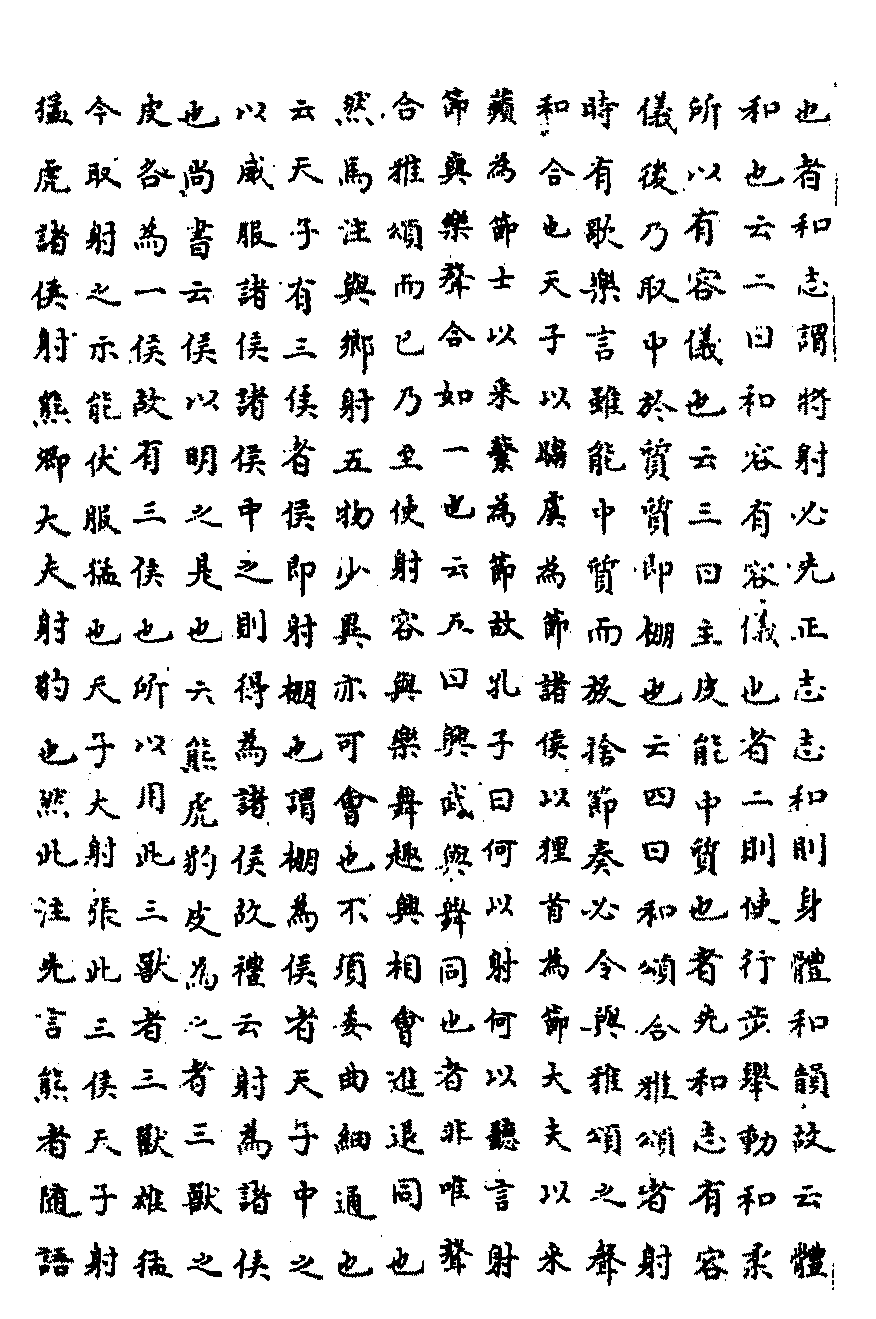 也者和志謂将射必先正志志和則身體和韻故云體
和也云二曰和容有容儀也者二則使行步舉動和柔
所以有容儀也云三曰主皮能中質也者先和志有容
儀後乃取中於質質即棚也云四曰和頌合雅頌者射
時有歌樂言雖能中質而放捨節奏必令與雅頌之聲
和合也天子以騶虞為節諸侯以狸首為節大夫以采
蘋為節士以采蘩為節故孔子曰何以射何以聽言射
節與樂聲合如一也云五曰興武與舞同也者非唯聲
合雅頌而已乃至使射容與樂舞趣興相會進退同也
然馬注與鄉射五物少異亦可會也不須委曲細通也
云天子有三侯者侯即射棚也謂棚為侯者天子中之
以威服諸侯諸侯中之則得為諸侯故禮云射為諸侯
也尚書云侯以明之是也六熊虎豹皮為之者三獸之
皮各為一侯故有三侯也所以用此三獸者三獸雄猛
今取射之示能伏服猛也天子大射張此三侯天子射
猛虎諸侯射熊卿大夫射豹也然此注先言熊者随語